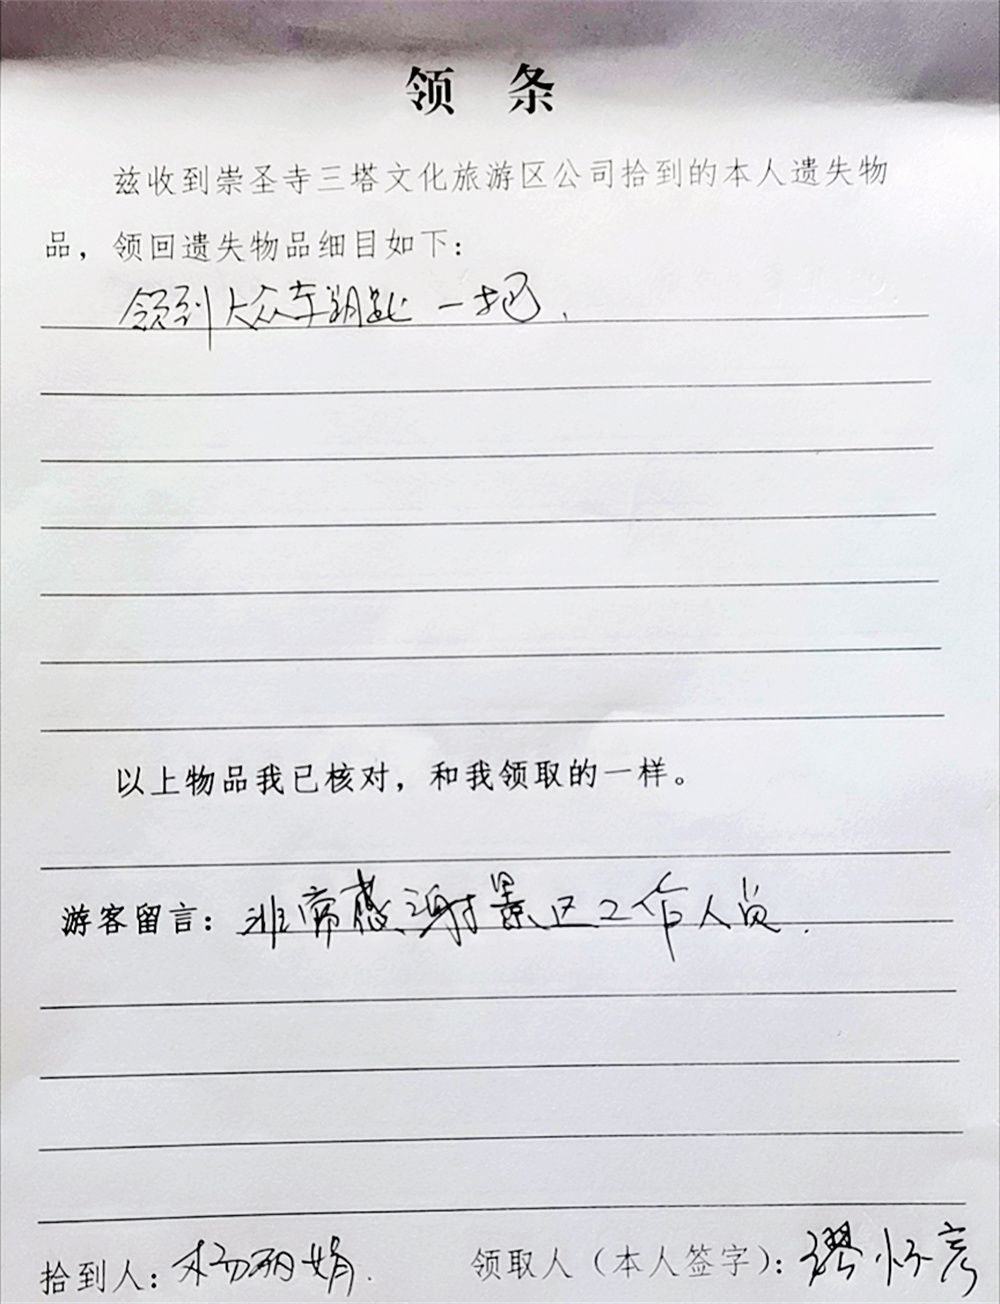 领 条
兹收到崇圣寺三塔文化旅游区公司拾到的本人遗失物
品，领回遗失物品细目如下：
领到大众车钥匙一把.
以上物品我已核对，和我领取的一样。
游客留言：非常感谢景区工作人员.
拾到人：杨丽娟. 领取人（本人签字）：怀彦